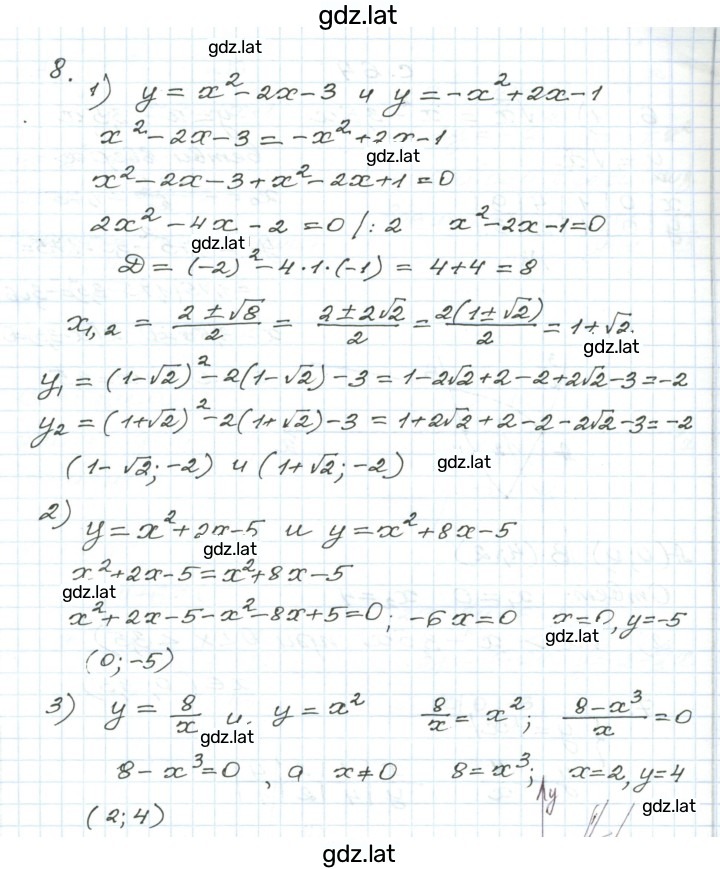 gdz.lat
gdz.lat
8. 1) y = x² - 2x - 3 и y = -x² + 2x - 1
x² - 2x - 3 = -x² + 2x - 1
gdz.lat
x² - 2x - 3 + x² - 2x + 1 = 0
2x² - 4x - 2 = 0 /: 2 x² - 2x - 1 = 0
gdz.lat
D = (-2)² - 4·1·(-1) = 4 + 4 = 8
x₁,₂ = (2 ± √8)/2 = (2 ± 2√2)/2 = 2(1 ± √2)/2 = 1 ± √2.
gdz.lat
y₁ = (1-√2)² - 2(1-√2) - 3 = 1 - 2√2 + 2 - 2 + 2√2 - 3 = -2
y₂ = (1+√2)² - 2(1+√2) - 3 = 1 + 2√2 + 2 - 2 - 2√2 - 3 = -2
(1 - √2; -2) и (1 + √2; -2) gdz.lat
2) y = x² + 2x - 5 и y = x² + 8x - 5
gdz.lat
x² + 2x - 5 = x² + 8x - 5
gdz.lat
x² + 2x - 5 - x² - 8x + 5 = 0; -6x = 0 x = 0, y = -5
gdz.lat
(0; -5)
3) y = 8/x и y = x² 8/x = x²; (8 - x³)/x = 0
gdz.lat
8 - x³ = 0, а x ≠ 0 8 = x³; x = 2, y = 4
gdz.lat
(2; 4)
gdz.lat